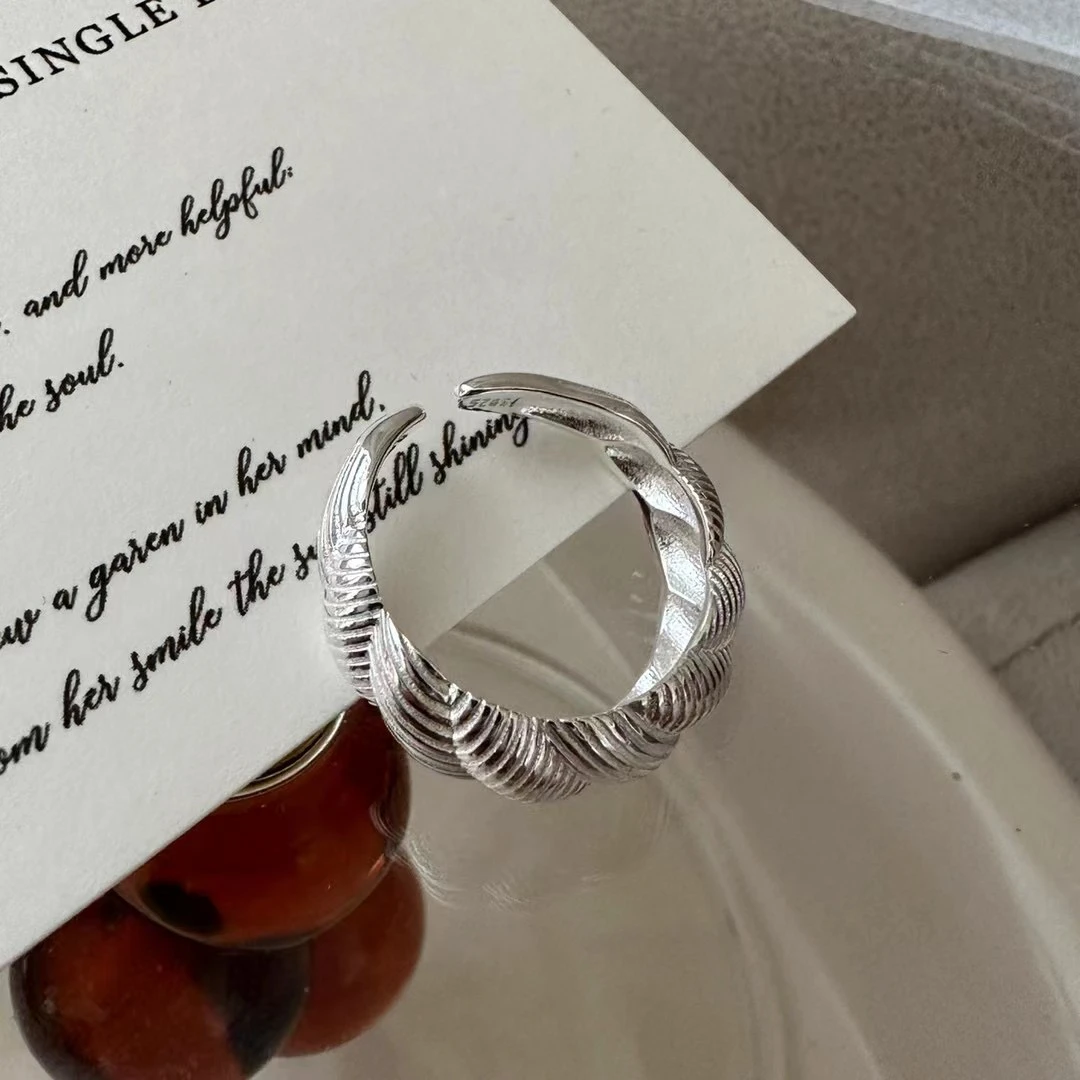 SINGLE
and more helpful:
he soul.
a garen in her mind,
om her smile the su still shining